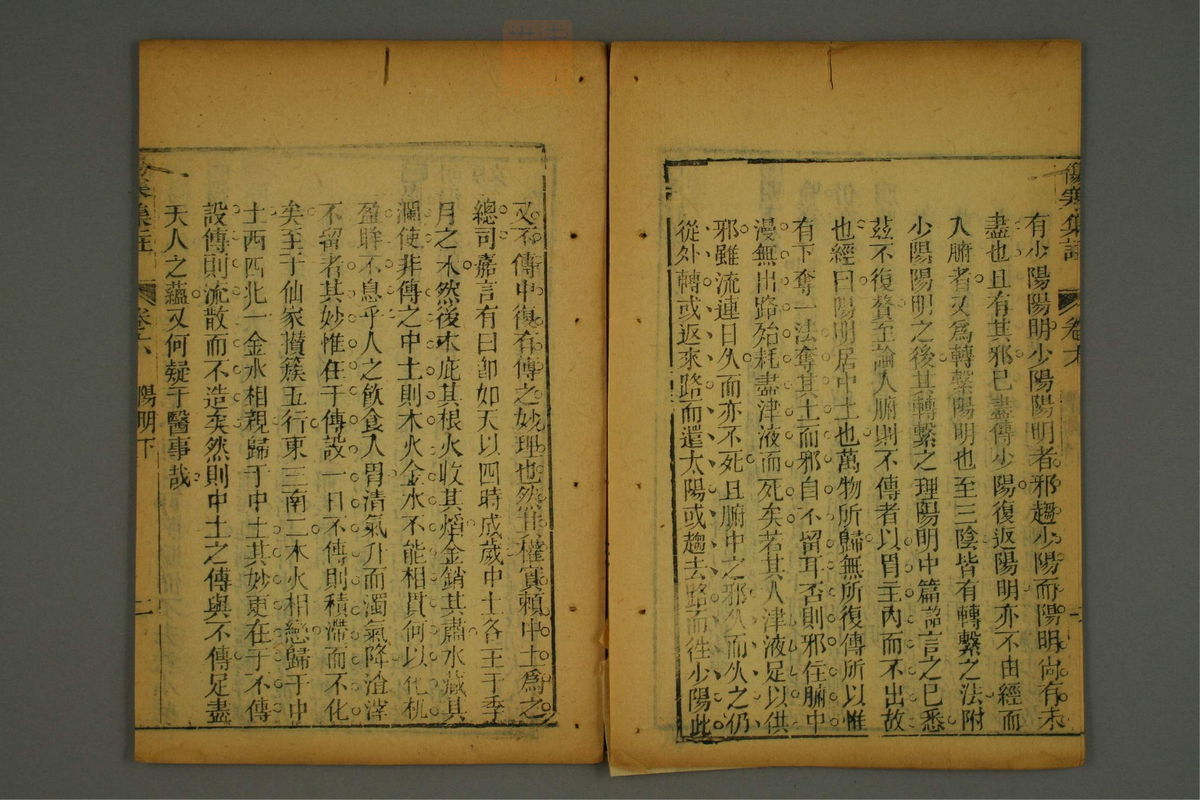 傷寒集註
卷六
有少陽陽明少陽陽明者邪趨少陽而陽明尚有未
盡也且有其邪巳盡傳少陽復返陽明亦不由經而
入腑者又為轉繫陽明也至三陰皆有轉繫之法附
少陽陽明之後其轉繫之理陽明中篇詔言之巳悉
茲不復贅至論入腑則不傳者以胃主內而不出故
也經曰陽明居中土也萬物所歸無所復傳所以惟
有下奪一法奪其土而邪自不留耳否則邪住腑中
漫無出路殆耗盡津液而死矣若其人津液足以供
邪雖流連日久而亦不死且腑中之邪久而久之仍
從外轉或返來路而還太陽或趨去路而徃少陽此
又不傳中復有傳之妙理也然其權實賴中土為之
總司嘉言有曰卽如天以四時成歲中土各王于季
月之末然後木庇其根火收其焰金銷其肅水藏其
瀾使非傳之中土則木火金水不能相貫何以化机
盈眸不息乎人之飲食入胃清氣升而濁氣降渣滓
不留者其妙惟在于傳設一日不傳則積滯而不化
矣至于仙家攅簇五行東三南二木火相戀歸于中
土西四北一金水相親歸于中土其妙更在于不傳
設傳則流散而不造矣然則中土之傳與不傳足盡
天人之蘊又何疑于醫事哉
卷六
陽明下
二